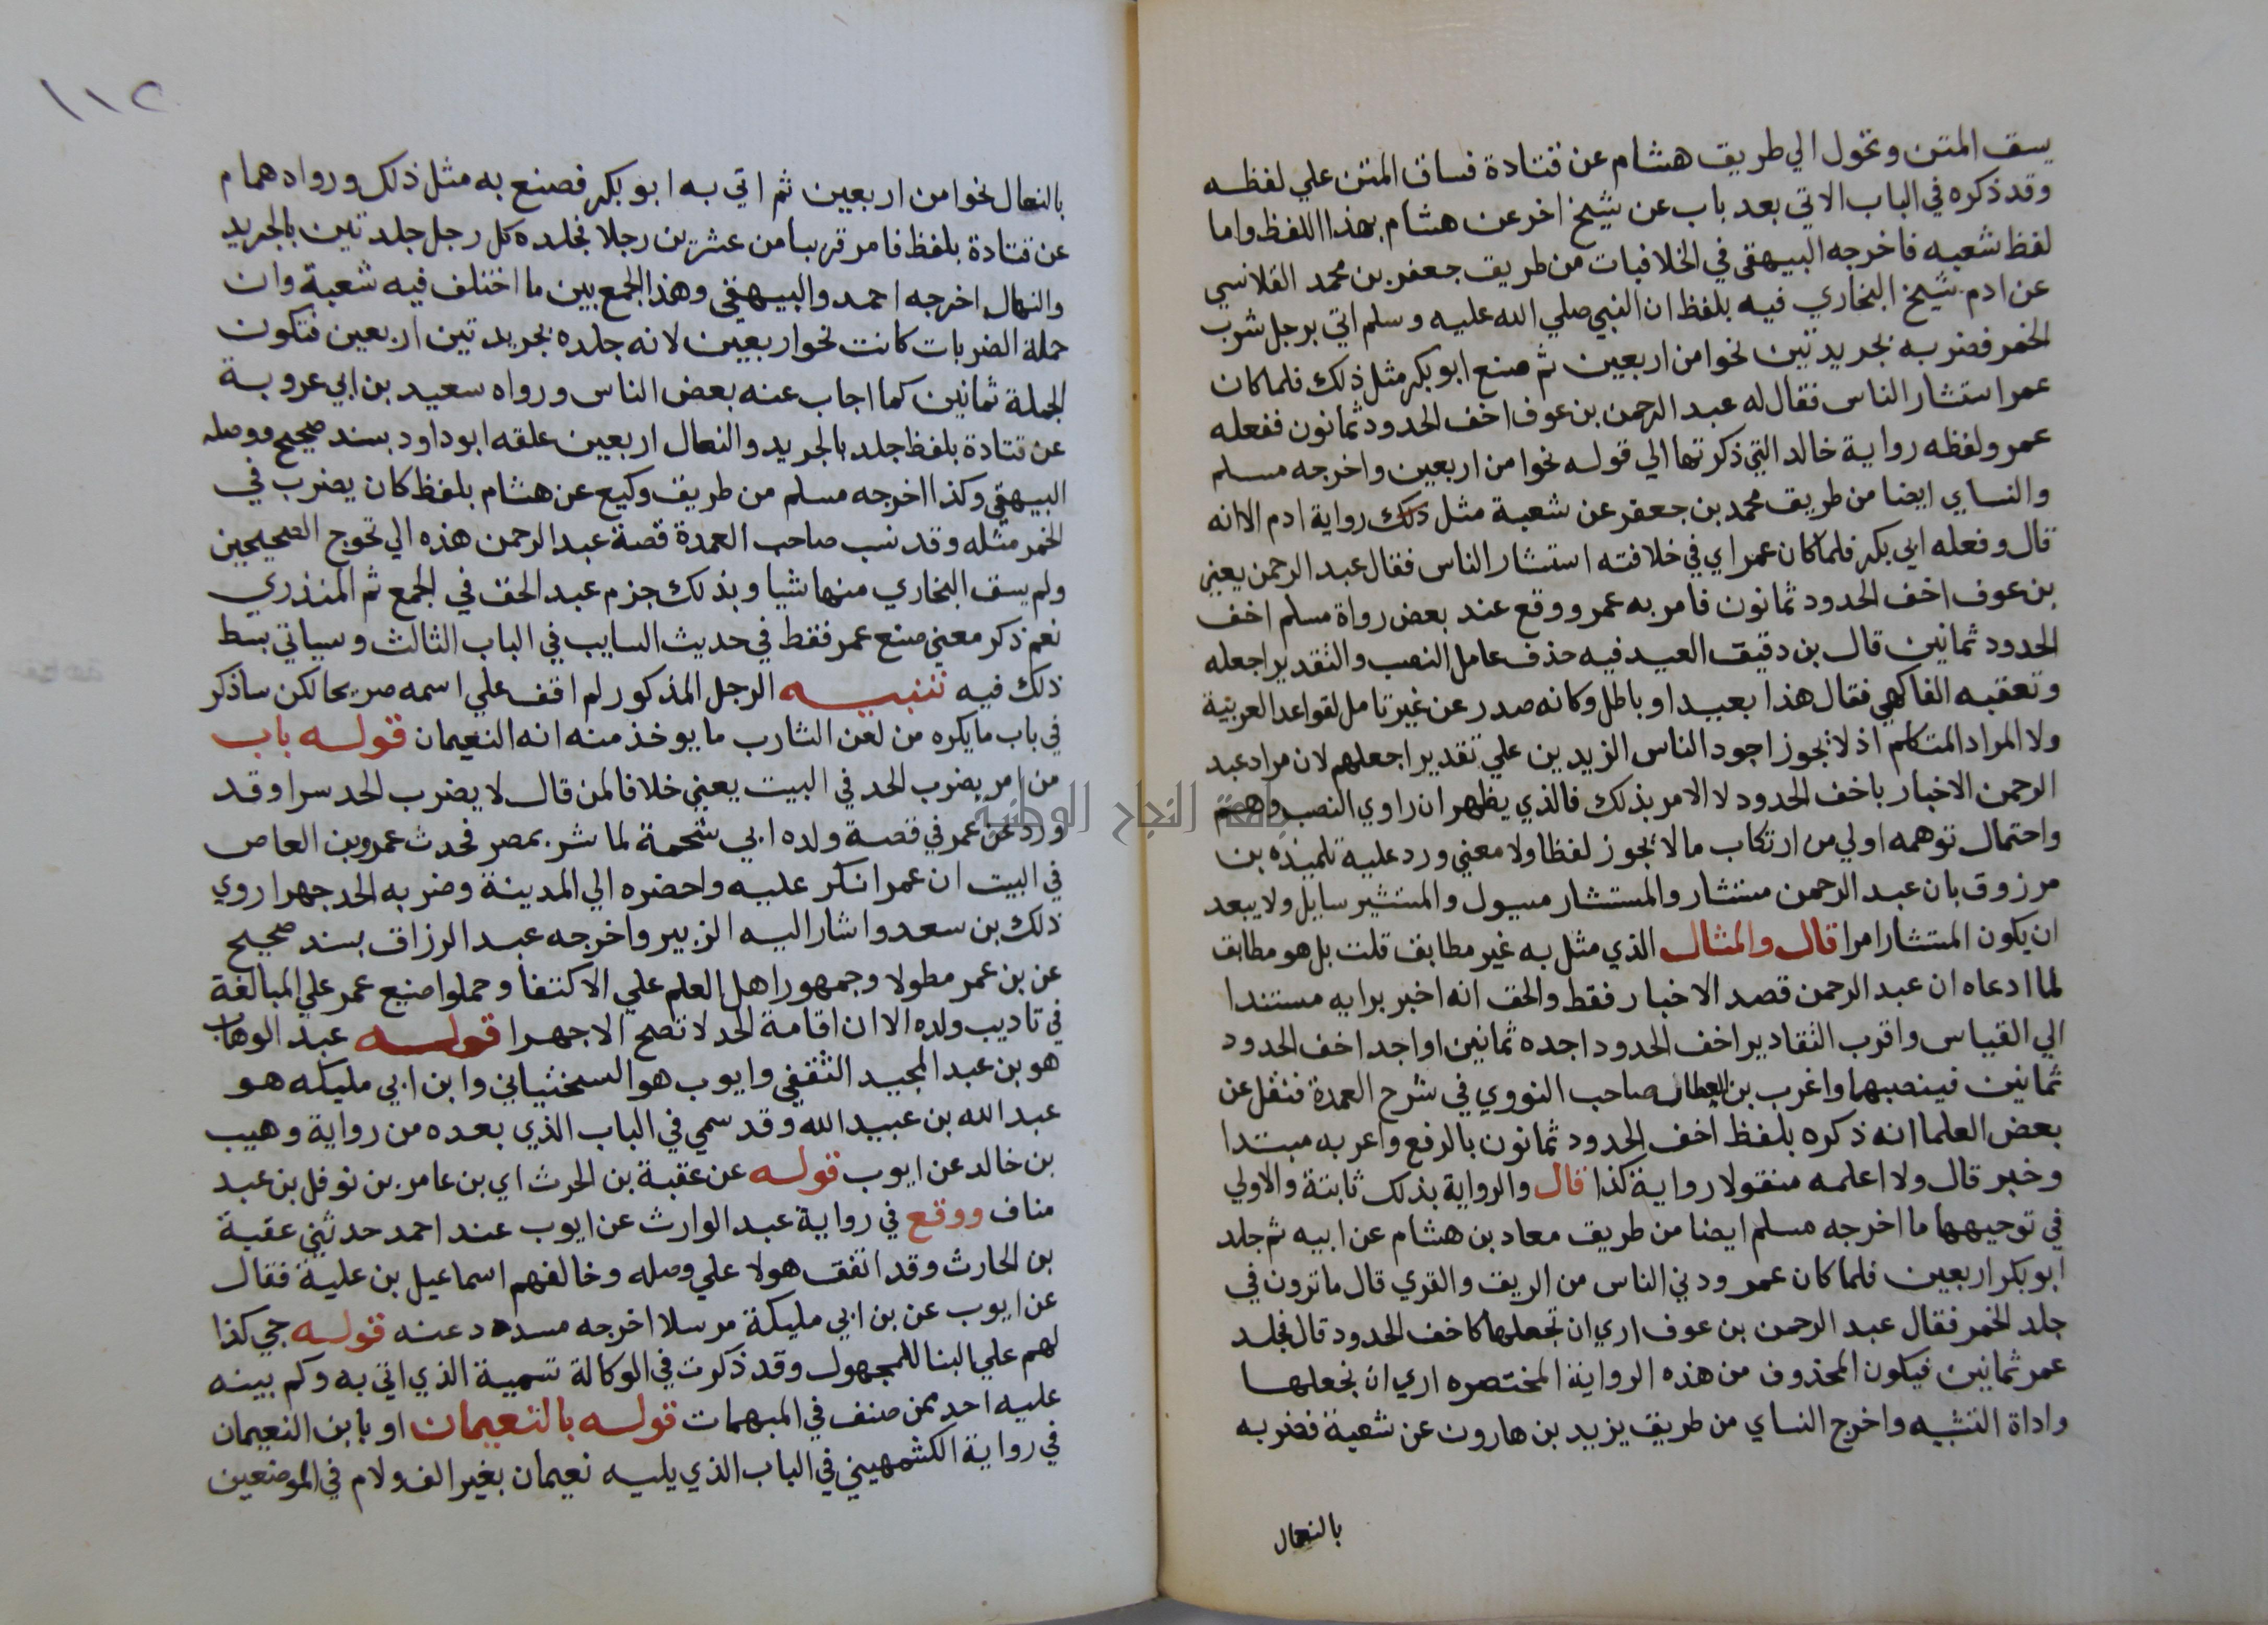 يسق المتن وتحول الي طريق هشام عن قتادة فساق المتن علي لفظه
وقد ذكره في الباب الاتي بعد باب عن شيخ اخر عن هشام بهذا اللفظ واما
لفظ شعبه فاخرجه البيهقي في الخلافيات من طريق جعفر بن محمد القلانسي
عن ادم شيخ البخاري فيه بلفظ ان النبي صلي الله عليه وسلم اتي برجل شرب
الخمر فضربه بجريدتين نحوا من اربعين ثم صنع ابو بكر مثل ذلك فلما كان
عمر استشار الناس فقال له عبد الرحمن بن عوف اخف الحدود ثمانون ففعله
عمر ولفظه رواية خالد التي ذكرتها الي قوله نحوا من اربعين واخرجه مسلم
والنساي ايضا من طريق محمد بن جعفر عن شعبة مثل ذلك رواية ادم الا انه
قال وفعله ابي بكر فلما كان عمر اي في خلافته استشار الناس فقال عبد الرحمن يعني
بن عوف اخف الحدود ثمانون فامر به عمر ووقع عند بعض رواة مسلم اخف
الحدود ثمانين قال بن دقيق العيد فيه حذف عامل النصب والتقدير اجعله
وتعقبه الفاكهي فقال هذا بعيد او باطل وكانه صدر عن غير تامل لقواعد العربية
ولا المراد المتكلم اذ لا يجوز اجود الناس الزيدين علي تقدير اجعلهم لان مراد عبد
الرحمن الاخبار باخف الحدود لا الامر بذلك فالذي يظهر ان راوي النصب وهم
واحتمال توهمه اولي من ارتكاب ما لا يجوز لفظا ولا معني ورد عليه تلميذه بن
مرزوق بان عبد الرحمن مستشار والمستشار مسيول والمستشير سايل ولا يبعد
ان يكون المستشار امرا قال والمثال الذي مثل به غير مطابق قلت بل هو مطابق
لما ادعاه ان عبد الرحمن قصد الاخبار فقط والحق انه اخبر برايه مستندا
الي القياس واقرب التقادير اخف الحدود اجده ثمانين او اجد اخف الحدود
ثمانين فينصبهما واغرب بن العطار صاحب النووي في شرح العمدة فنقل عن
بعض العلما انه ذكره بلفظ اخف الحدود ثمانون بالرفع واعربه مبتدا
وخبر قال ولا اعلمه منقولا رواية كذا قال والرواية بذلك ثابتة والاولي
في توجيهها ما اخرجه مسلم ايضا من طريق معاد بن هشام عن ابيه ثم جلد
ابو بكر اربعين فلما كان عمر ودني الناس من الريف والقري قال ما ترون في
جلد الخمر فقال عبد الرحمن بن عوف اري ان تجعلها كاخف الحدود قال فجلد
عمر ثمانين فيكون المحذوف من هذه الرواية المختصره اري ان نجعلها
واداة التشبيه واخرج النساي من طريق يزيد بن هارون عن شعبة فضربه
بالنعال
١١٢
بالنعال نحوا من اربعين ثم اتي به ابو بكر فصنع به مثل ذلك ورواه همام
عن قتادة بلفظ فامر قريبا من عشرين رجلا فجلده كل رجل جلدتين بالجريد
والنعال اخرجه احمد والبيهقي وهذا الجمع بين ما اختلف فيه شعبة وان
جملة الضربات كانت نحو اربعين لانه جلده بجريدتين اربعين فتكون
الجملة ثمانين كما اجاب عنه بعض الناس ورواه سعيد بن ابي عروبة
عن قتادة بلفظ جلد بالجريد والنعال اربعين علقه ابو داود بسند صحيح ووصله
البيهقي وكذا اخرجه مسلم من طريق وكيع عن هشام بلفظ كان يضرب في
الخمر مثله وقد نسب صاحب العمدة قصة عبد الرحمن هذه الي تخرج الصحيحين
ولم يسق البخاري منها شيا وبذلك جزم عبد الحق في الجمع ثم المنذري
نعم ذكر معني صنع عمر فقط في حديث السايب في الباب الثالث وسياتي بسط
ذلك فيه تنبيه الرجل المذكور لم اقف علي اسمه صريحا لكن ساذكر
في باب ما يكره من لعن الشارب ما يوخذ منه انه النعيمان قوله باب
من امر بضرب الحد في البيت يعني خلافا لمن قال لا يضرب الحد سرا وقد
ورد عن عمر في قصة ولده ابي شحمة لما شرب بمصر فحدث عمرو بن العاص
في البيت ان عمر انكر عليه واحضره الي المدينة وضربه الحد جهرا روي
ذلك بن سعد واشار اليه الزبير واخرجه عبد الرزاق بسند صحيح
عن بن عمر مطولا وجمهور اهل العلم علي الاكتفا وحملوا صنيع عمر علي المبالغة
في تاديب ولده الا ان اقامة الحد لا تصح الا جهرا قوله عبد الوهاب
هو بن عبد المجيد الثقفي وايوب هو السختياني وابن ابي مليكه هو
عبد الله بن عبيد الله وقد سمي في الباب الذي بعده من رواية وهيب
بن خالد عن ايوب قوله عن عقبة بن الحرث اي بن عامر بن نوفل بن عبد
مناف ووقع في رواية عبد الوارث عن ايوب عند احمد حدثني عقبة
بن الحارث وقد اتفق هولا علي وصله وخالفهم اسماعيل بن علية فقال
عن ايوب عن بن ابي مليكة مرسلا اخرجه مسدد عنه قوله جي كذا
لهم علي البنا للمجهول وقد ذكرت في الوكالة تسمية الذي اتي به وكم بينه
عليه احد ممن صنف في المبهمات قوله بالنعيمان او بابن النعيمان
في رواية الكشمهيني في الباب الذي يليه نعيمان بغير الف ولام في الموضعين
جامعة النجاح الوطنية